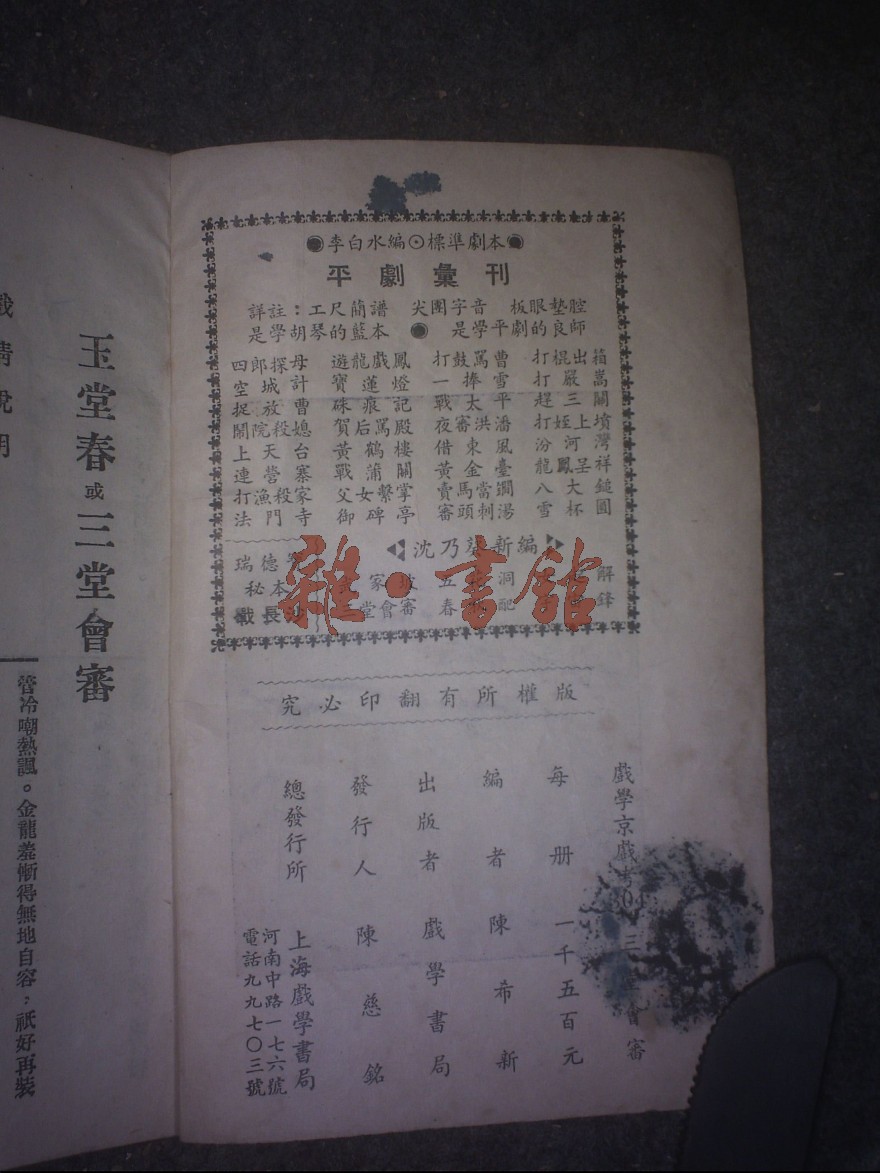 玉堂春或三堂會審
管冷嘲熱諷。金龍羞慚得無地自容，祇好再裝
●李白水編⊙標準劇本●
平劇彙刊
詳註：工尺簡譜 尖團字音 板眼墊腔
是學胡琴的藍本 ● 是學平劇的良師
四郎探母 遊龍戲鳳 打鼓罵曹 打棍出箱
空城計 寶蓮燈 一捧雪 打嚴嵩
捉放曹 硃痕記 戰太平 趕三關
鬧院殺媳 賀后罵殿 夜審洪潘 打姪上墳
上天台 黃鶴樓 借東風 汾河灣
連營寨 戰蒲關 黃金臺 龍鳳呈祥
打漁殺家 父女繫掌 賣馬當鐧 八大鎚
法門寺 御碑亭 審頭刺湯 雪杯圓
沈乃葵新編
瑞德
秘本
戰長沙
家坡
堂會審
五
春
洞
配
解
鋒
雜·書館
版權所有翻印必究
戲學京戲考
三 會審
每册一千五百元
編者陳希新
出版者戲學書局
發行人陳慈銘
總發行所上海戲學書局
河南中路一七六號
電話九九七〇三號